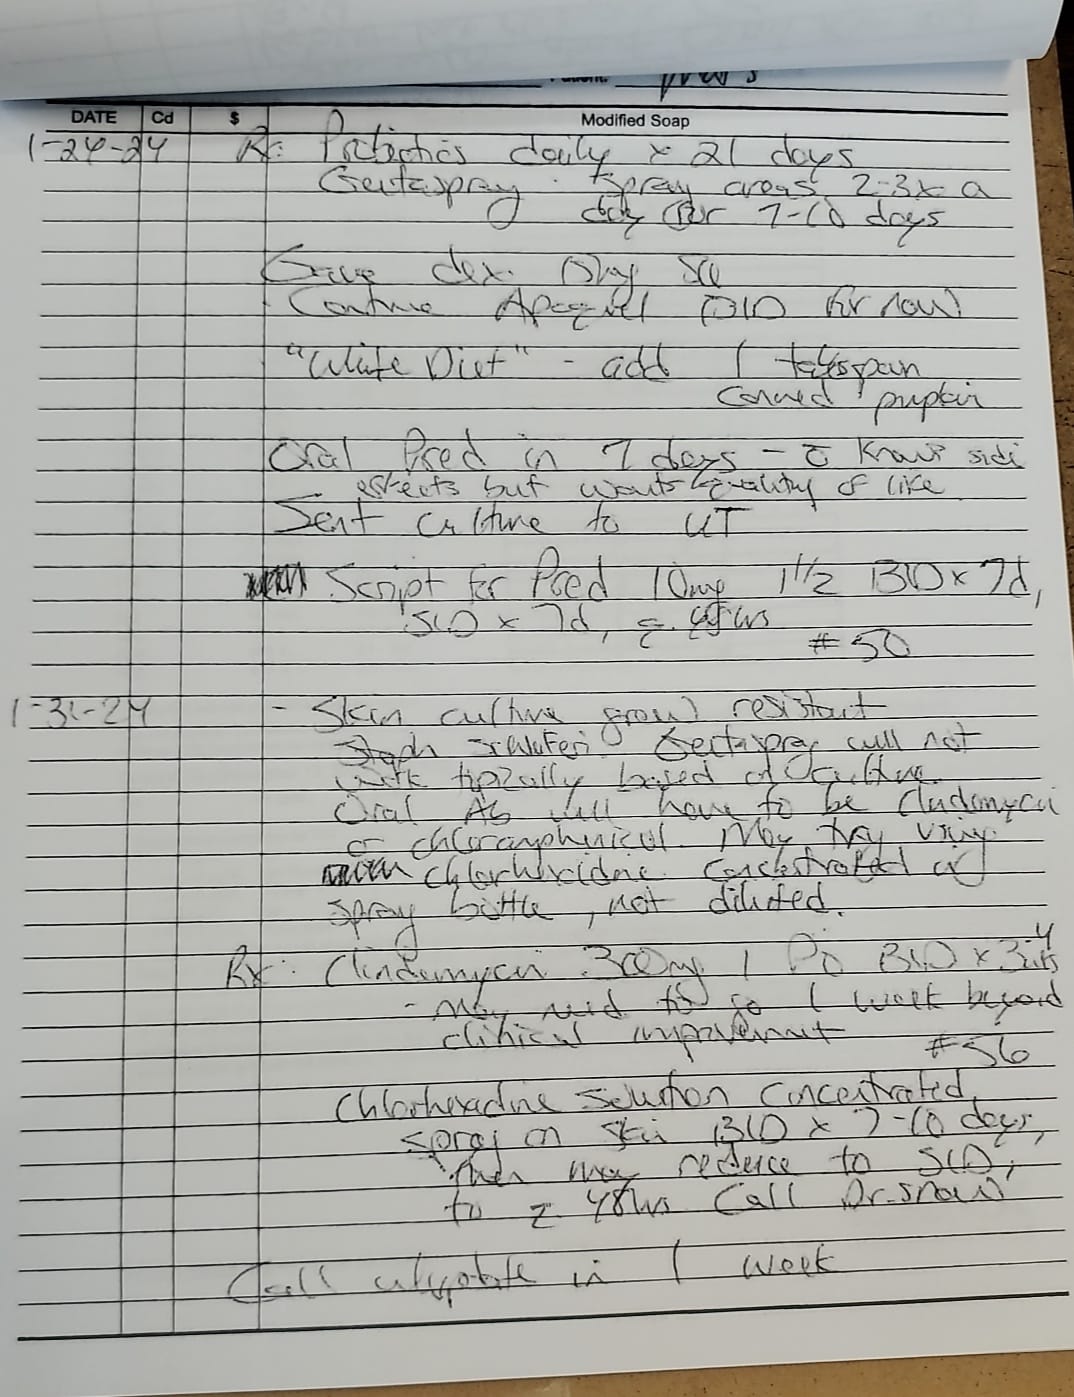 DATE Cd $ Modified Soap
1-24-24 Rx: Probiotics daily x 21 days
Gentaspray: spray areas 2-3x a
day for 7-10 days
Gave dex. SQ
Continue Apoquel BID for now
"White Diet" - add 1 tablespoon
canned pumpkin
Oral Pred in 7 days - O knows side
effects but wants quality of life
Sent culture to UT
Script for Pred 10mg 1 1/2 BID x 7d,
SID x 7d, 48hrs
#50
1-31-24 - Skin culture grew resistant
Staph Gentaspray will not
work topically based on culture.
Oral Ab will have to be Clindamycin
or chloramphenicol. May try using
chlorhexidine concentrated in
spray bottle, not diluted.
Rx: Clindamycin 300mg 1 PO BID x 4
- may need to go 1 week beyond
clinical improvement
#56
Chlorhexadine solution concentrated,
spray on skin BID x 7-10 days,
then may reduce to SID,
to 48hrs Call Dr. Snow
Call update in 1 week